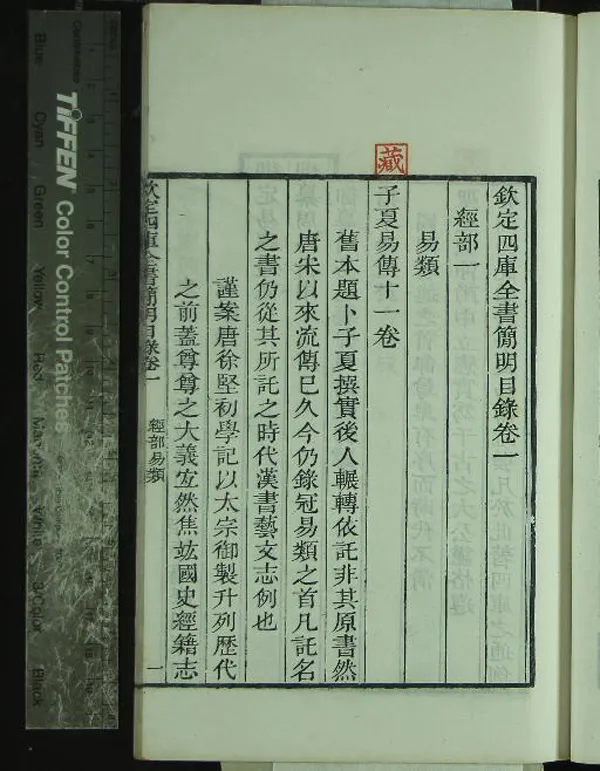 藏
欽定四庫全書簡明目錄卷一
經部一
易類
子夏易傳十一卷
舊本題卜子夏撰實後人輾轉依託非其原書然
唐宋以來流傳已久今仍錄冠易類之首凡託名
之書仍從其所託之時代漢書藝文志例也
謹案唐徐堅初學記以太宗御製升列歷代
之前蓋尊尊之大義宐然焦竑國史經籍志
欽定四庫全書簡明目錄卷一 經部易類 一
TIFFEN Color Control Patches
Blue Cyan Green Yellow Red Magenta White 3/Color Black